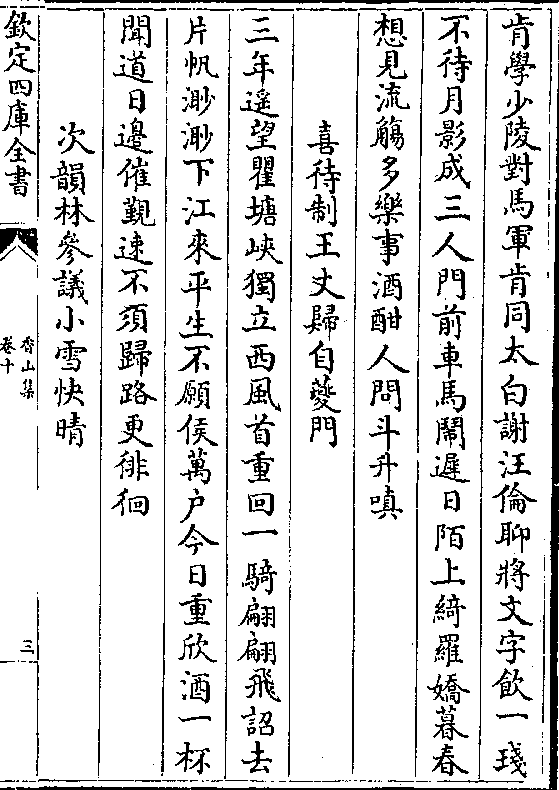 肯學少陵對馬軍肯同太白謝汪倫聊將文字飲一琖
不待月影成三人門前車馬鬧遲日陌上綺羅嬌暮春
想見流觴多樂事酒酣人問斗升嗔
喜待制王丈歸自夔門
三年遥望瞿塘峽獨立西風首重回一騎翩翩飛詔去
片帆渺渺下江來平生不願侯萬户今日重欣酒一杯
聞道日邊催覲速不須歸路更徘徊
次韻林參議小雪快晴
欽定四庫全書
香山集
卷十
三